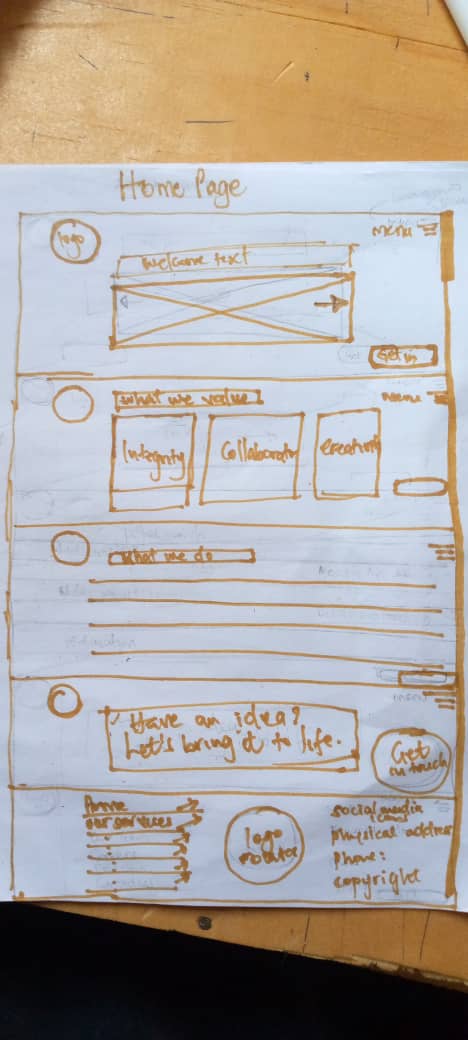 Home Page
logo
menu
Welcome text
Get in
What we value
menu
Integrity
Collaborati
creation
What we do
menu
Have an idea?
Let's bring it to life.
Get
in touch
Home
our services
logo
social media
physical address
phone:
copyright